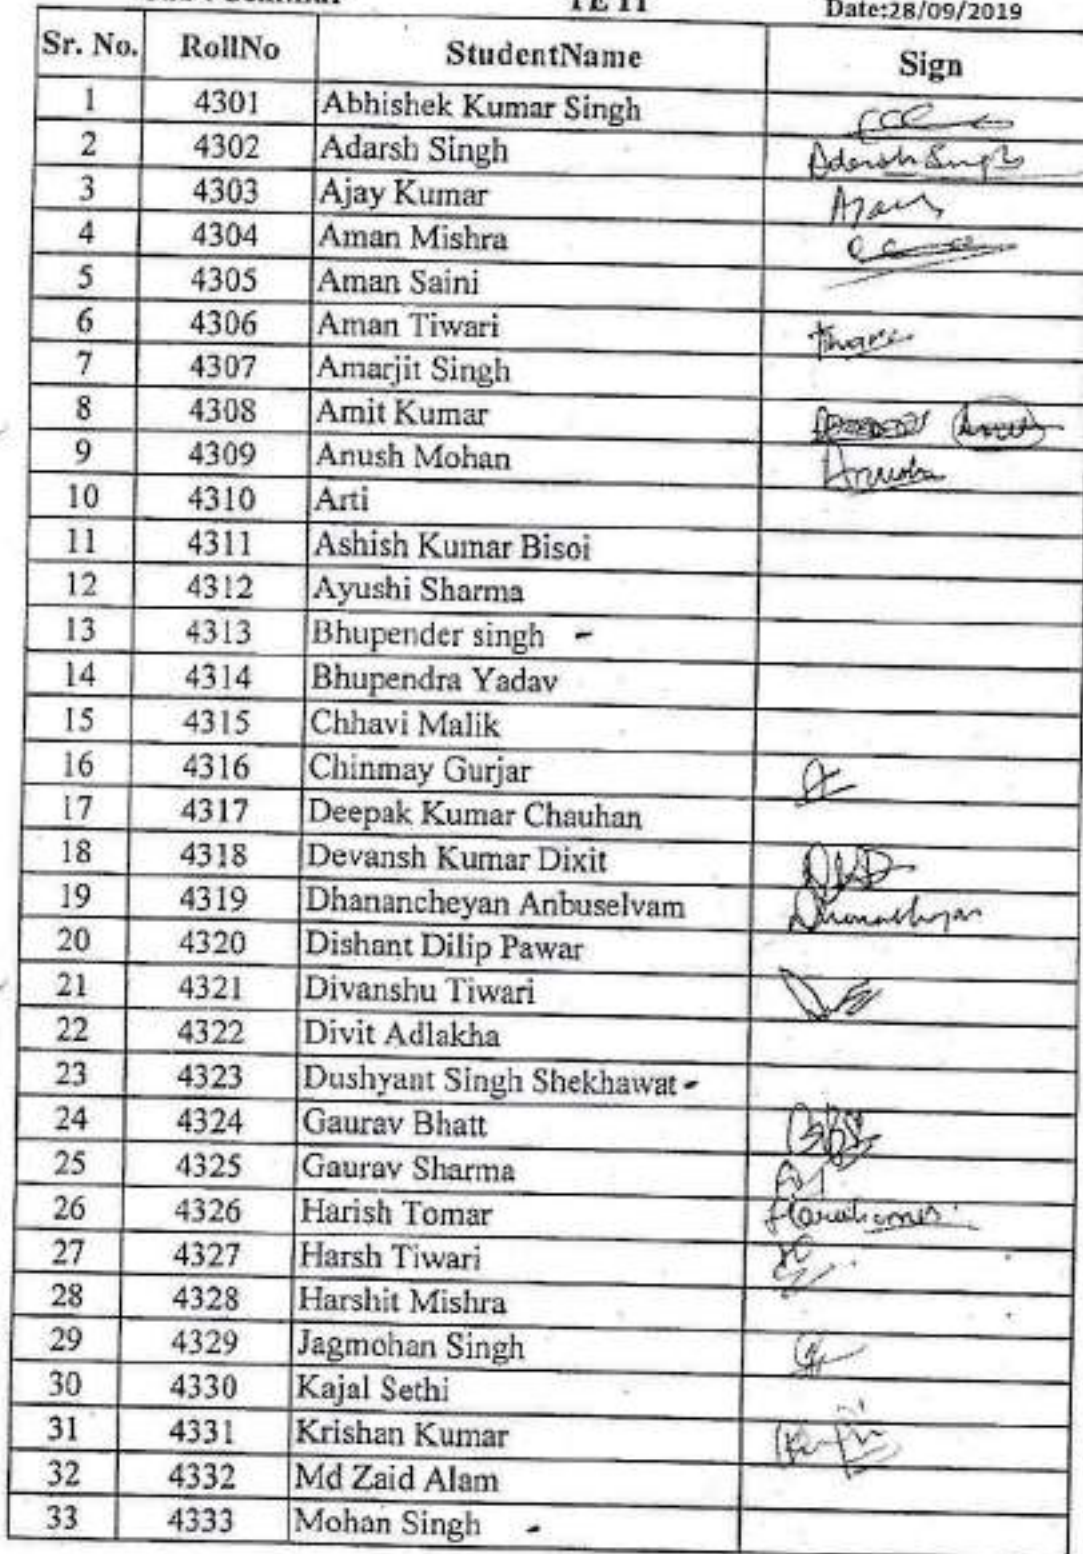 Date:28/09/2019
Sr. No. RollNo StudentName Sign
1 4301 Abhishek Kumar Singh
2 4302 Adarsh Singh Adarsh Singh
3 4303 Ajay Kumar Ajay
4 4304 Aman Mishra
5 4305 Aman Saini
6 4306 Aman Tiwari
7 4307 Amarjit Singh
8 4308 Amit Kumar
9 4309 Anush Mohan
10 4310 Arti
11 4311 Ashish Kumar Bisoi
12 4312 Ayushi Sharma
13 4313 Bhupender singh -
14 4314 Bhupendra Yadav
15 4315 Chhavi Malik
16 4316 Chinmay Gurjar
17 4317 Deepak Kumar Chauhan
18 4318 Devansh Kumar Dixit DKD
19 4319 Dhanancheyan Anbuselvam
20 4320 Dishant Dilip Pawar
21 4321 Divanshu Tiwari
22 4322 Divit Adlakha
23 4323 Dushyant Singh Shekhawat -
24 4324 Gaurav Bhatt
25 4325 Gaurav Sharma
26 4326 Harish Tomar
27 4327 Harsh Tiwari
28 4328 Harshit Mishra
29 4329 Jagmohan Singh
30 4330 Kajal Sethi
31 4331 Krishan Kumar
32 4332 Md Zaid Alam
33 4333 Mohan Singh -